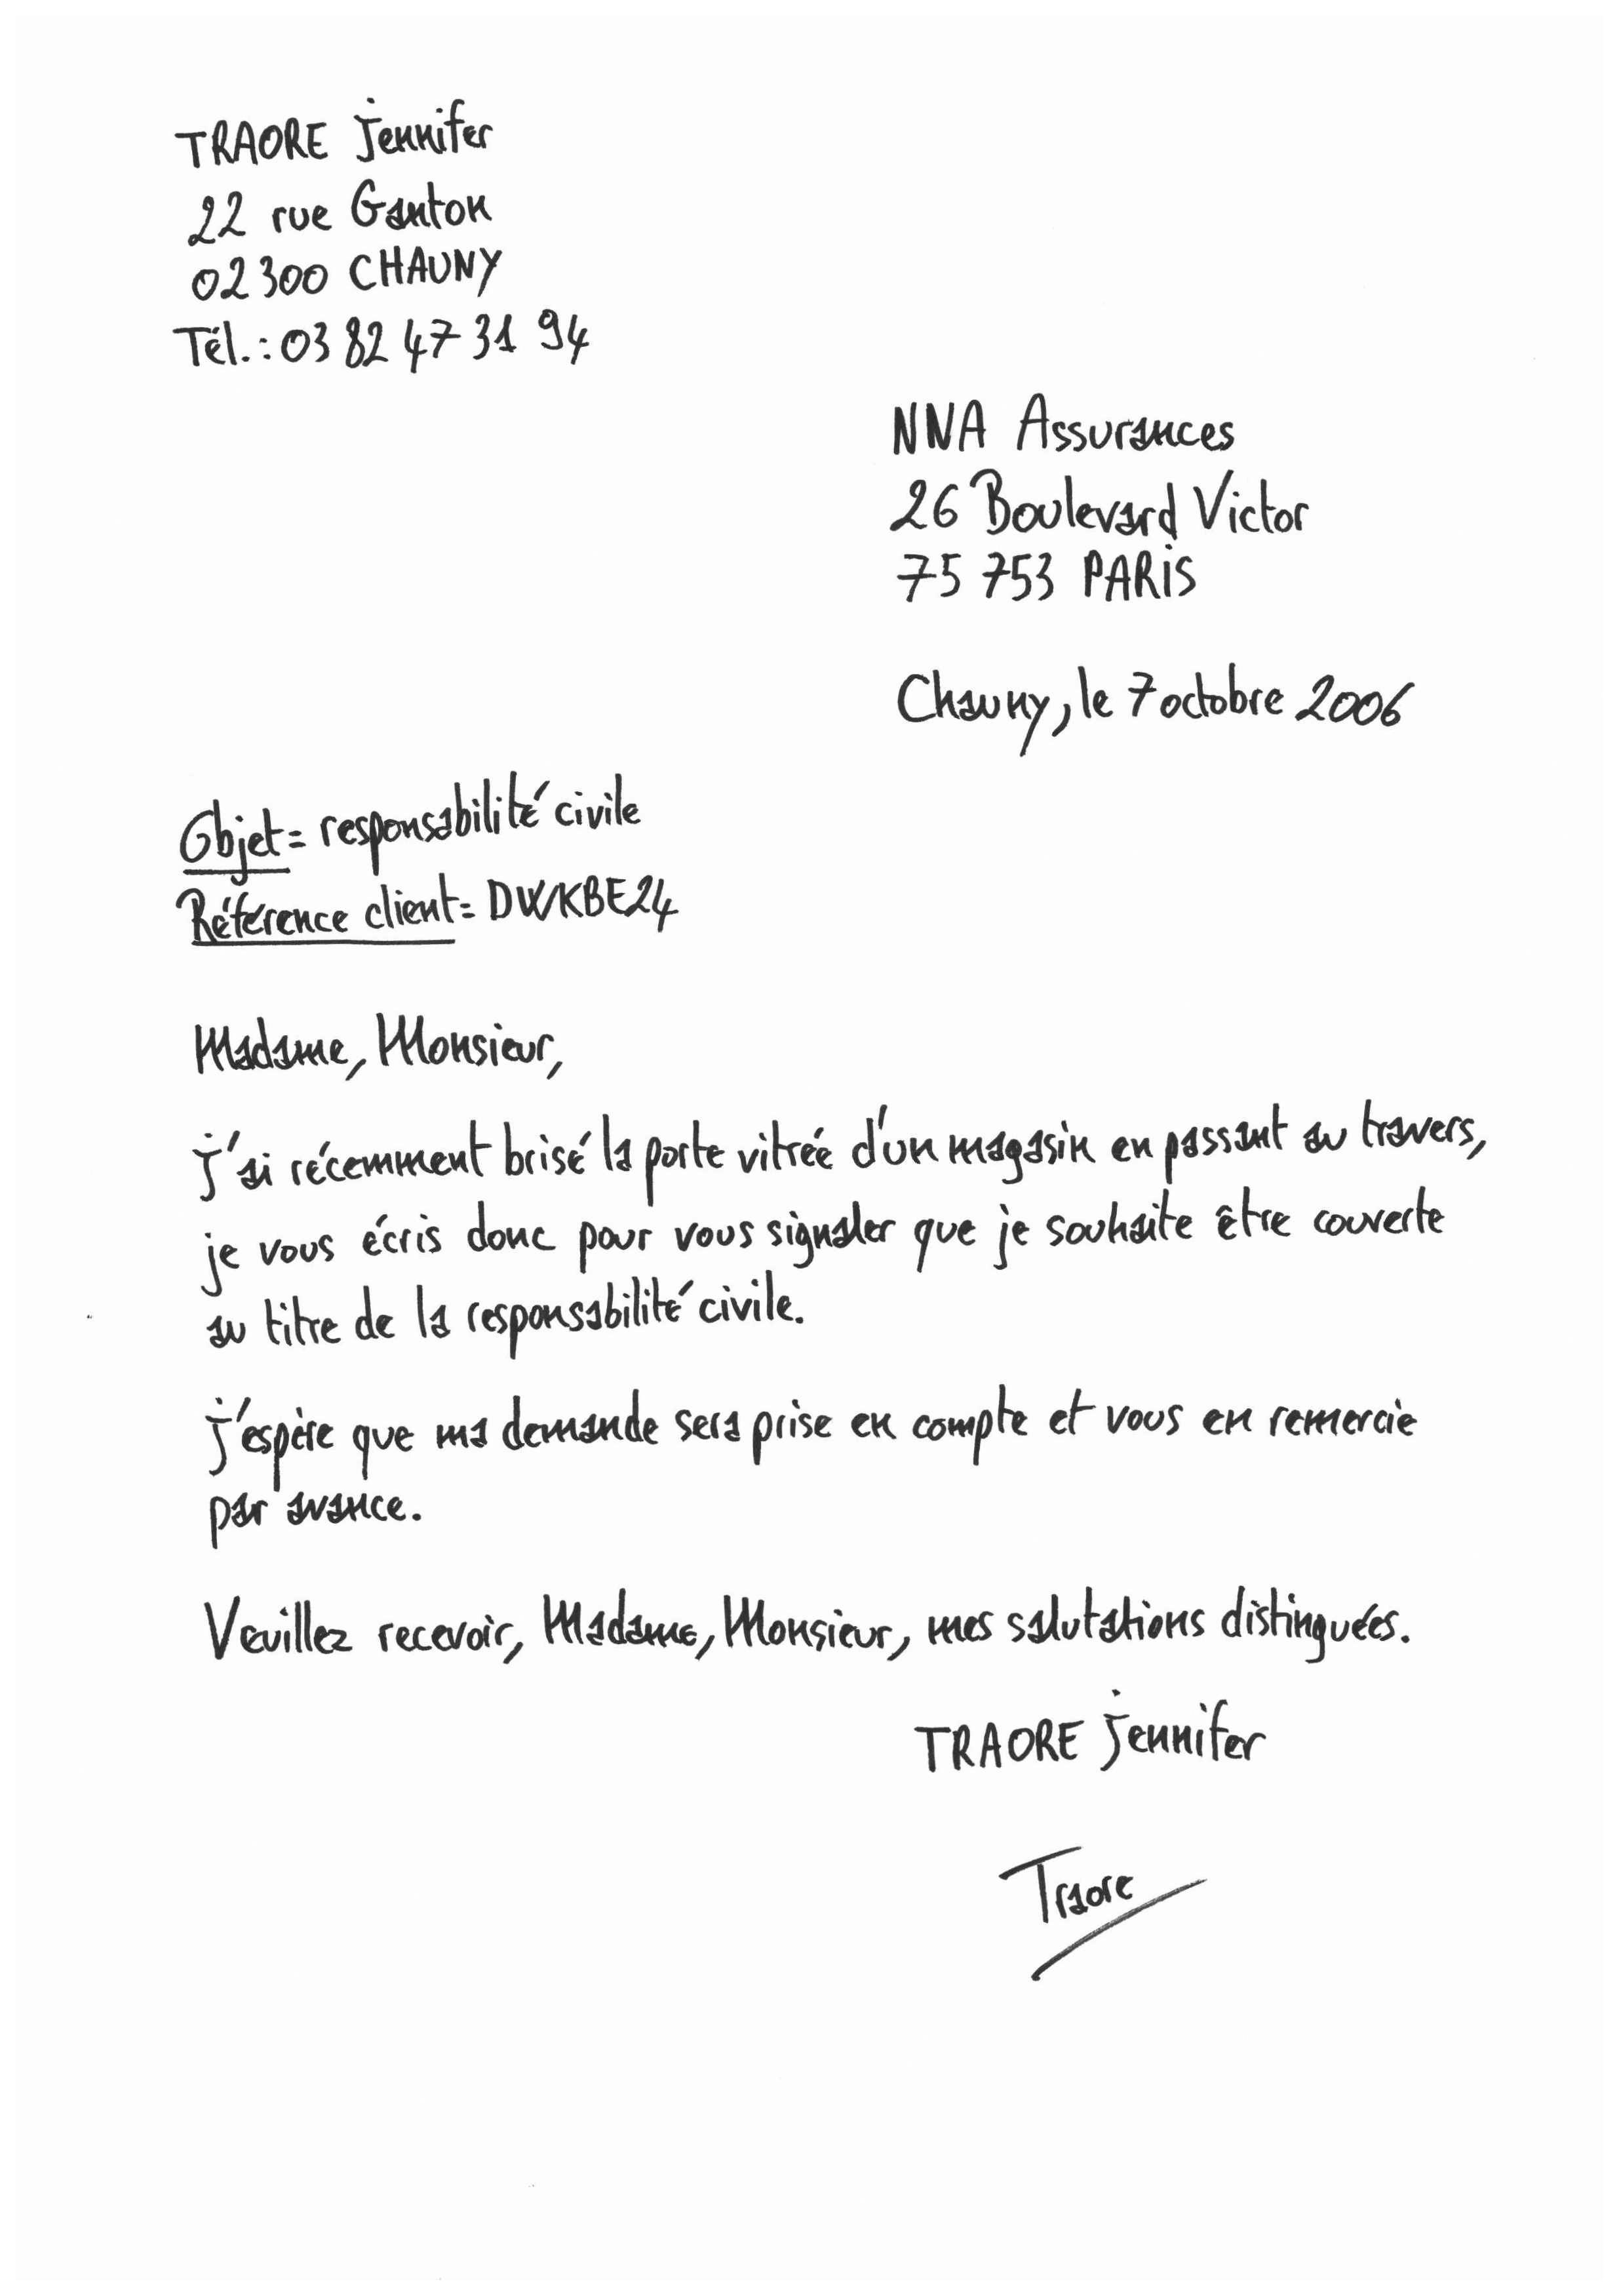 TRAORE Jennifer
22 rue Ganton
02300 CHAUNY
Tél. : 03 82 47 31 94
NNA Assurances
26 Boulevard Victor
75 753 PARIS
Chauny, le 7 octobre 2006
Objet = responsabilité civile
Référence client = DWKBE24
Madame, Monsieur,
J'ai récemment brisé la porte vitrée d'un magasin en passant au travers,
je vous écris donc pour vous signaler que je souhaite être couverte
au titre de la responsabilité civile.
J'espère que ma demande sera prise en compte et vous en remercie
par avance.
Veuillez recevoir, Madame, Monsieur, mes salutations distinguées.
TRAORE Jennifer
Traore